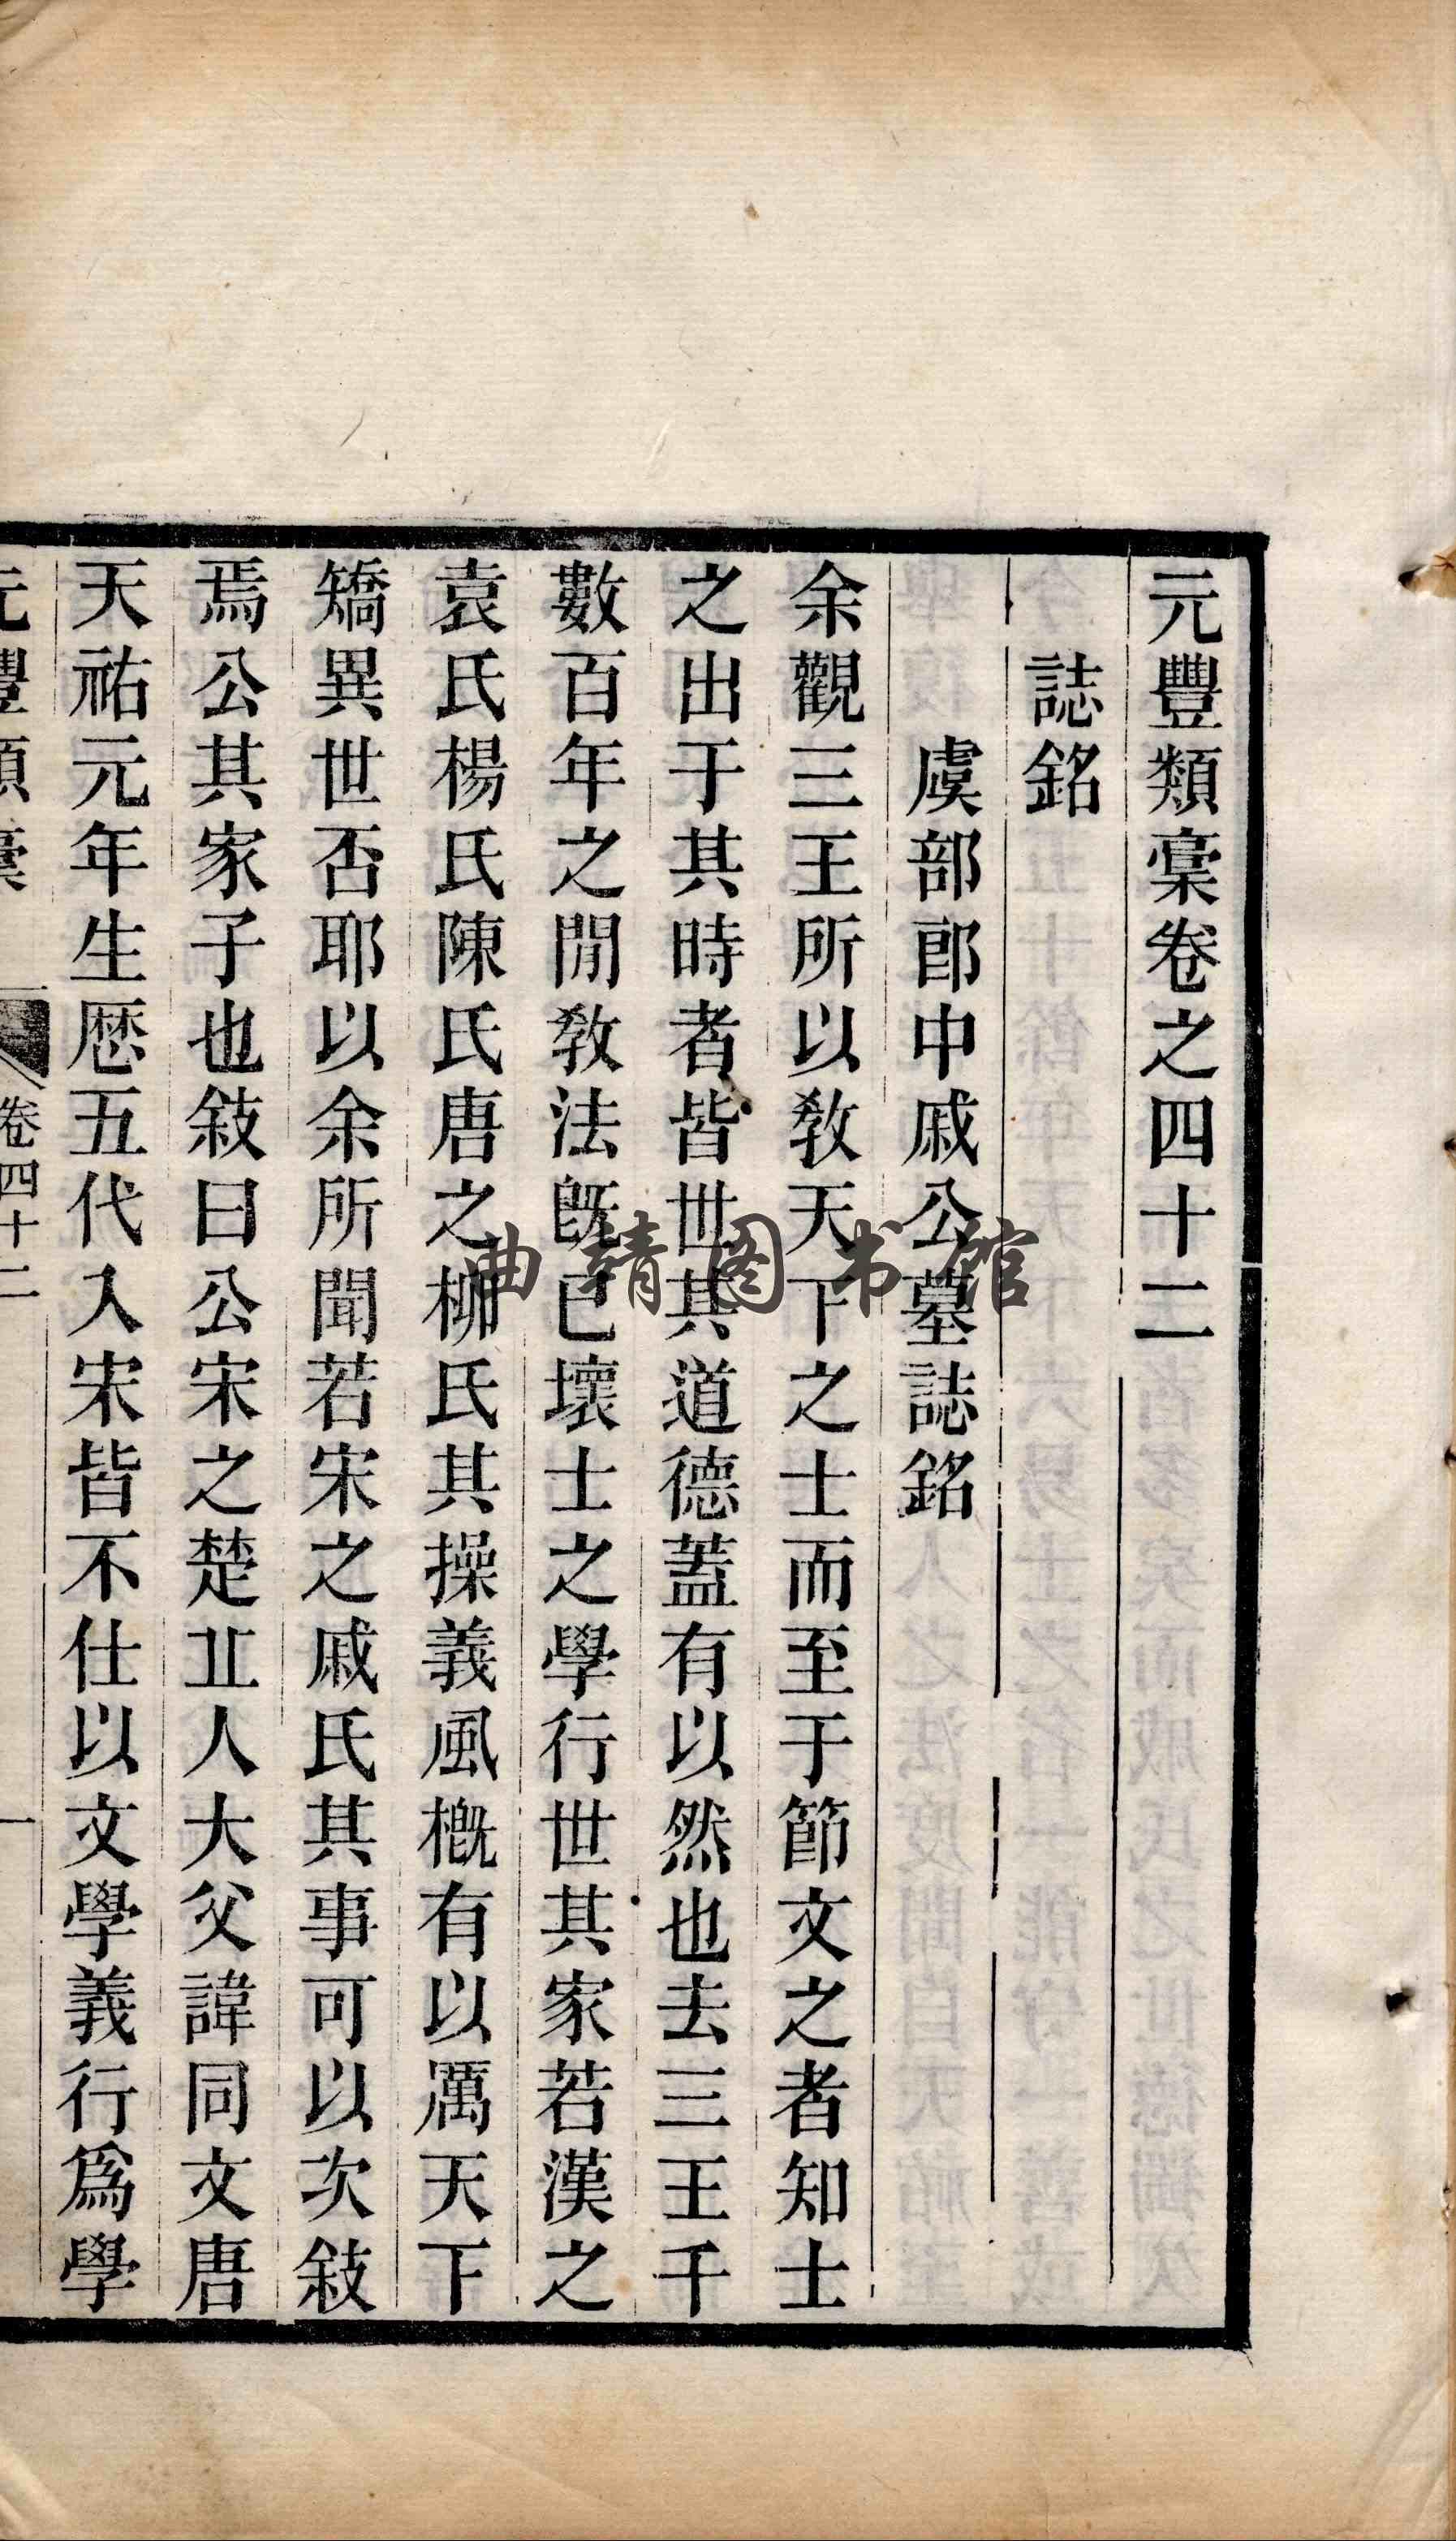 元豐類稾卷之四十二
誌銘
虞部郎中戚公墓誌銘
余觀三王所以教天下之士而至于節文之者知士
之出于其時者皆世其道德蓋有以然也去三王千
數百年之閒教法旣已壞士之學行世其家若漢之
袁氏楊氏陳氏唐之柳氏其操義風槪有以厲天下
矯異世否耶以余所聞若宋之戚氏其事可以次敍
焉公其家子也敍曰公宋之楚丠人大父諱同文唐
天祐元年生歴五代入宋皆不仕以文學義行爲學
元豐類稾 卷四十二 一
曲靖图书馆